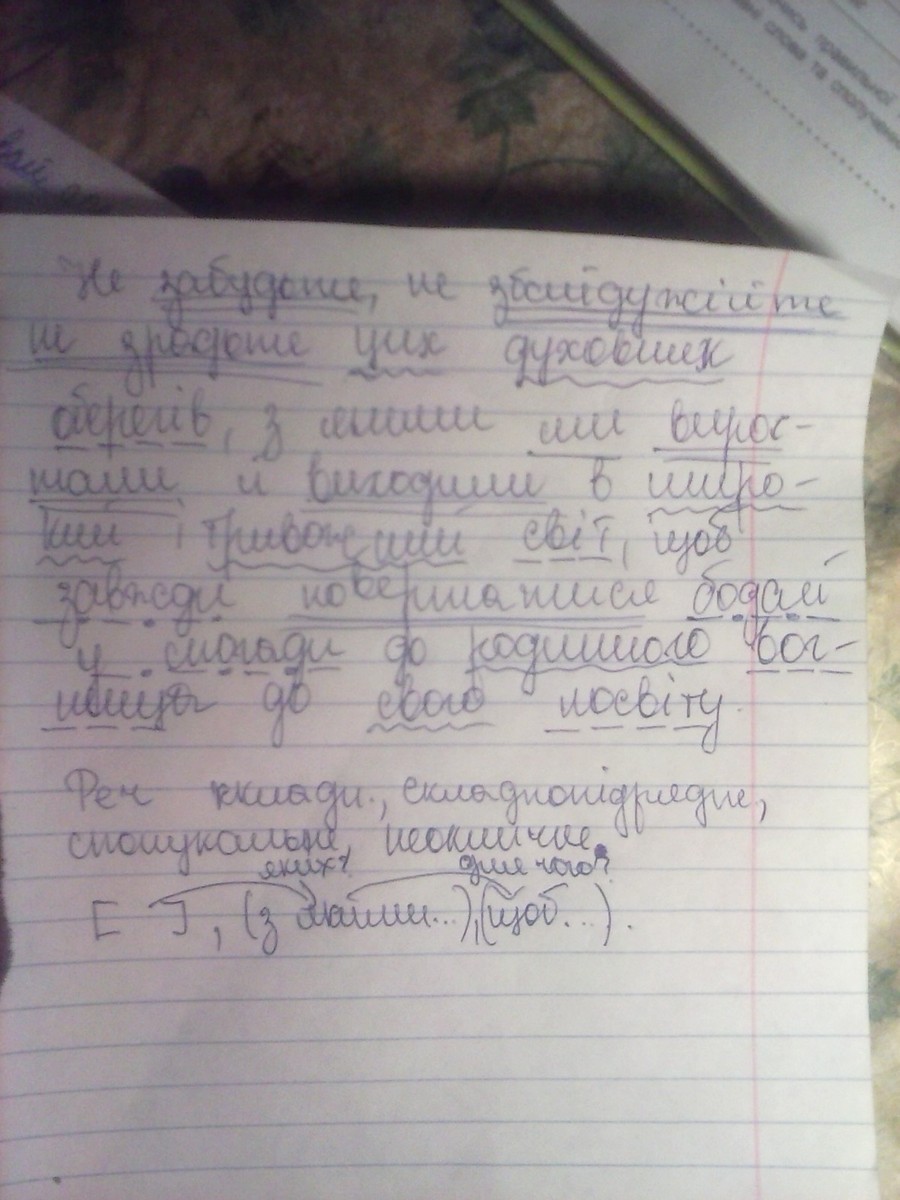 правильної
слова та сполучен
Не забудьте, не збайдужійте
не зродьте цих духовних
оберегів, з якими ми вирос-
тали й виходили в широ-
кий і тривожний світ, щоб
завжди повертатися бодай
у спогади до родинного вог-
нища до свого лосвіту.
Реч складн., складнопідрядне,
спонукальне, неокличне.
яких? для чого?
[ ], (з якими...), (щоб...).